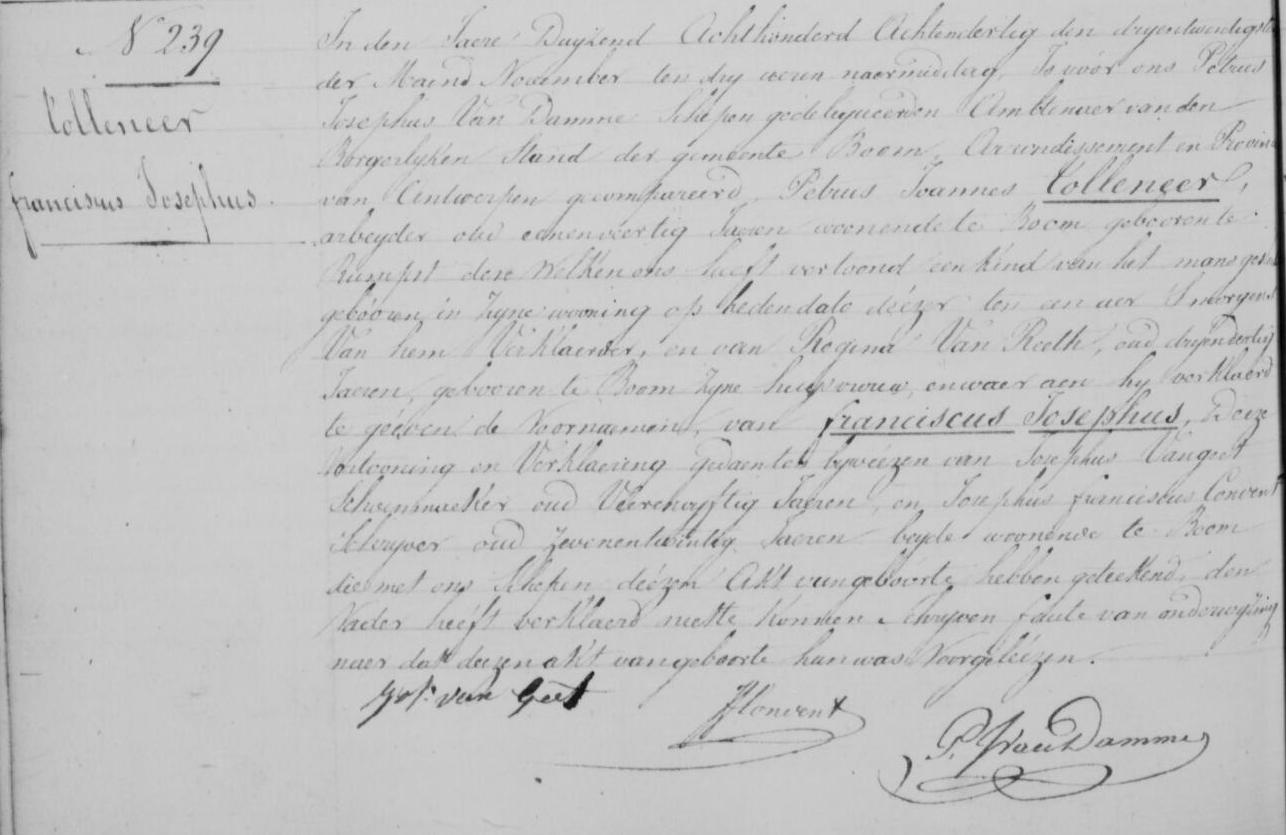 N° 239
Colleneer
franciscus Josephus.
In den Jaere Duyzend Achthonderd Achtendertig den dryentwintigste
der Maend November ten dry ueren naermiddag, Is vóór ons Petrus
Josephus Van Damme Schepen gedelegueerden Ambtenaer van den
Borgerlyken Stand der gemeente Boom, Arrondissement en Provin
van Antwerpen gecompareerd, Petrus Joannes Colleneer,
arbeyder oud eenenveertig Jaeren woonende te Boom gebooren te
Rumpst den Welken ons heeft vertoond een kind van het mans gesl
gebóóren in Zyne wooning op heden date deézer ten een uer Smorgens
Van hem Verklaerder, en van Regina Van Reeth, oud dryendertig
Jaeren, gebooren te Boom Zyne huysvrouw, en waer aen hy verklaerd
te géeven de Voornaemen, van franciscus Josephus, Deéze
Vertooning en Verklaering gedaen ten bywéezen van Josephus Vangeet
Schoenmaeker oud Vierenvyftig Jaeren, en Josephus franciscus Convent
Schryver oud Zevenentwintig Jaeren beyde woonende te Boom
die met ons Schepen deézen Akt van geboórte hebben geteekend, den
Vader heéft verklaerd niet te konnen Schryven faute van onderwyzing
naer dat deezen akt van geboorte hun was Voorgeleézen.
Jos. van Geet
JfConvent
P. J. van Damme